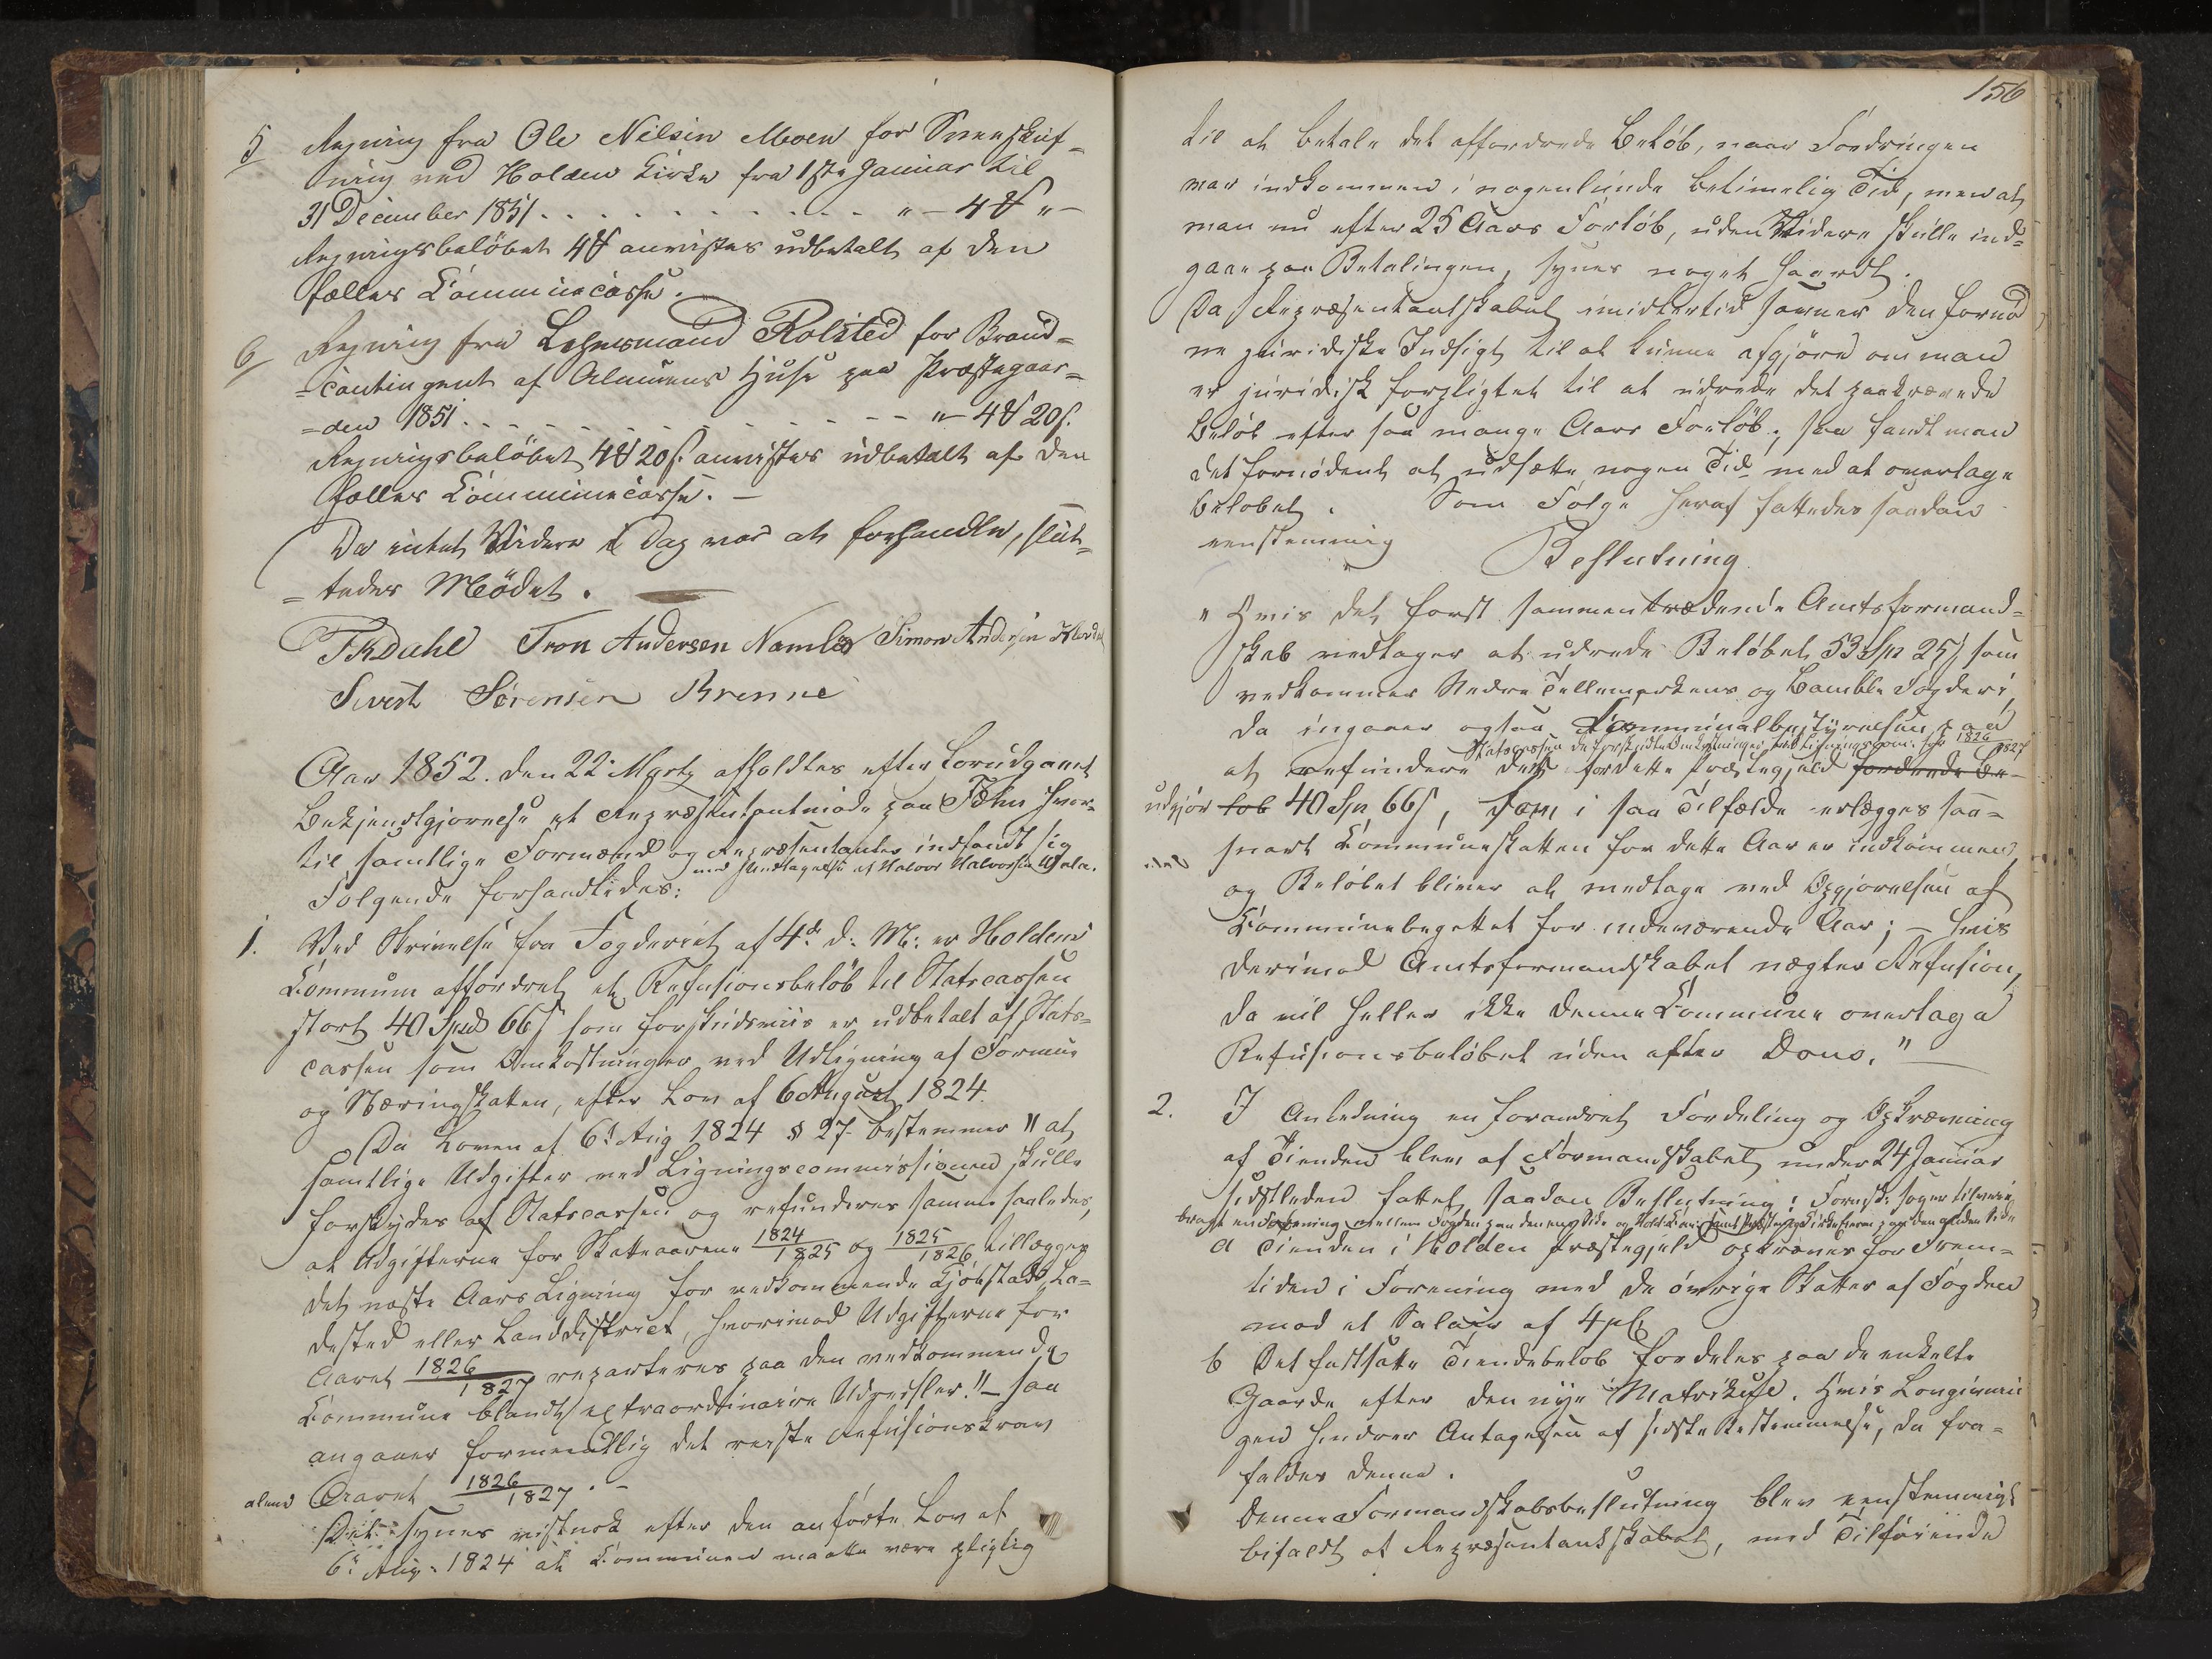 5 Regning fra Ole Nilsin Moen for Sneeskuf-
ning ved Holden Kirke fra 1ste Januar til
31 December 1851 . . . . . . . . . . . . " - 4 ₰ " -
Regningsbeløbet 4 ₰ anvistes udbetalt af den
fælles Communecasse.
6 Regning fra Lehnsmand Rolsted for Brand-
=contingent af Almuens Huse paa Præstegaar-
=den 1851 . . . . . . . . . . . " - 4 ₰ 20 s.
Regningsbeløbet 4 ₰ 20 s. anvistes udbetalt af den
fælles Communecasse. -
Da intet Videre i Dag var at forhandle, slut-
=tedes Mödet.
Dahl Tron Andersen Namløs Simon Andersen
Sivert Sörensen Brenne
Aar 1852. den 22 Marts afholdtes efter forudgaaet
Bekjendtgjørelse et Repræsentantmøde paa Tehn hvor-
til samtlige Formænd og Repræsentanter indfandt sig
med Undtagelse af Halvor Halvorsen Vala.
Følgende forhandledes:
1. Ved Skrivelse fra Fogderiet af 4de d: M: er Holdens
Kommune affordret et Refusionsbeløb til Statscassen
stort 40 Spd 66 s som forskudsviis er udbetalt af Stats-
cassen som Omkostninger ved Udligning af Formue
og Næringskatten, efter Lov af 6 August 1824.
Da Loven af 6te Aug 1824 § 27 bestemmer "at
samtlige Udgifter ved Ligningscommissionen skulle
forskydes af Statscassen og refunderes samme saaledes,
at Udgifterne for Skatteaarene 1824/1825 og 1825/1826 tillægges
det næste Aars Ligning for vedkommende Kjøbstad, La-
dested eller Landdistrict, hvorimod Udgifterne for
Aaret 1826/1827 reparteres paa den vedkommende
Kommune blandt extraordinaire Udredsler." - saa
angaaer formeentlig det reiste Refusionskrav
alene Aaret 1826/1827. -
Det synes vistnok efter den anførte Lov af
6te Aug. 1824 at Kommunen maatte være pligtig
156
til at betale det affordrede Beløb, naar Fordringen
var indkommen i nogenlunde betimelig Tid, men at
man nu efter 25 Aars Forløb, uden Videre skulle ind-
gaae paa Betalingen, synes noget haardt.
Da Repræsentantskabet imidlertid savner den fornød-
ne juridiske Indsigt til at kunne afgjøre om man
er juridisk forpligtet til at udrede det paakrævede
Beløb efter saa mange Aars Forløb, saa fandt man
det fornødent at udsætte nogen Tid med at overtage
beløbet. Som Følge heraf fattedes saadan
eenstemmig
Beslutning
"Hvis det først sammentrædende Amtsformand-
skab vedtager at udrede Beløbet 53 Sp 25 s som
vedkommer Nedre Tellemarkens og Bamble Fogderi,
da ingaaer ogsaa Kommunalbestyrelsen paa
Statscassen de forskudte Omkostninger ved Ligningscom. for 1826/1827
at refundere det for dette Præstegjeld fordrede Be-
udgjør løb 40 Spd 66 s, som i saa Tilfælde erlægges saa-
snart Kommuneskatten for dette Aar er indkommen
og Beløbet bliver at medtage ved Opgjørelsen af
Kommunebugettet for indeværende Aar; - hvis
derimod Amtsformandskabet nægter Refusion,
da vil heller ikke denne Kommune overtage
Refusionsbeløbet uden efter Dom."
2. I Anledning en forandret Fordeling og Opkrævning
af Tienden blev af Formandskabet under 24 Januar
sidstleden fattet saadan Beslutning: Formsk: søger tilveie
bragt en Forening mellem Fogden paa den ene Side og samt Præsten og Kirkeeieren paa den anden Side
a Tienden i Holden Præstegjeld opkræves for Frem-
tiden i Forening med de øvrige Skatter af Fogden
mod et Salair af 4 pCt
b Det fastsatte Tiendebeløb fordeles paa de enkelte
Gaarde efter den nye Matrikul. Hvis Lovgivnin-
gen hindrer Antagelsen af sidste Bestemmelse, da fra-
faldes denne.
Denne Formandskabsbeslutning blev eenstemmigt
bifaldt af Repræsentantskabet, med Tilføiende